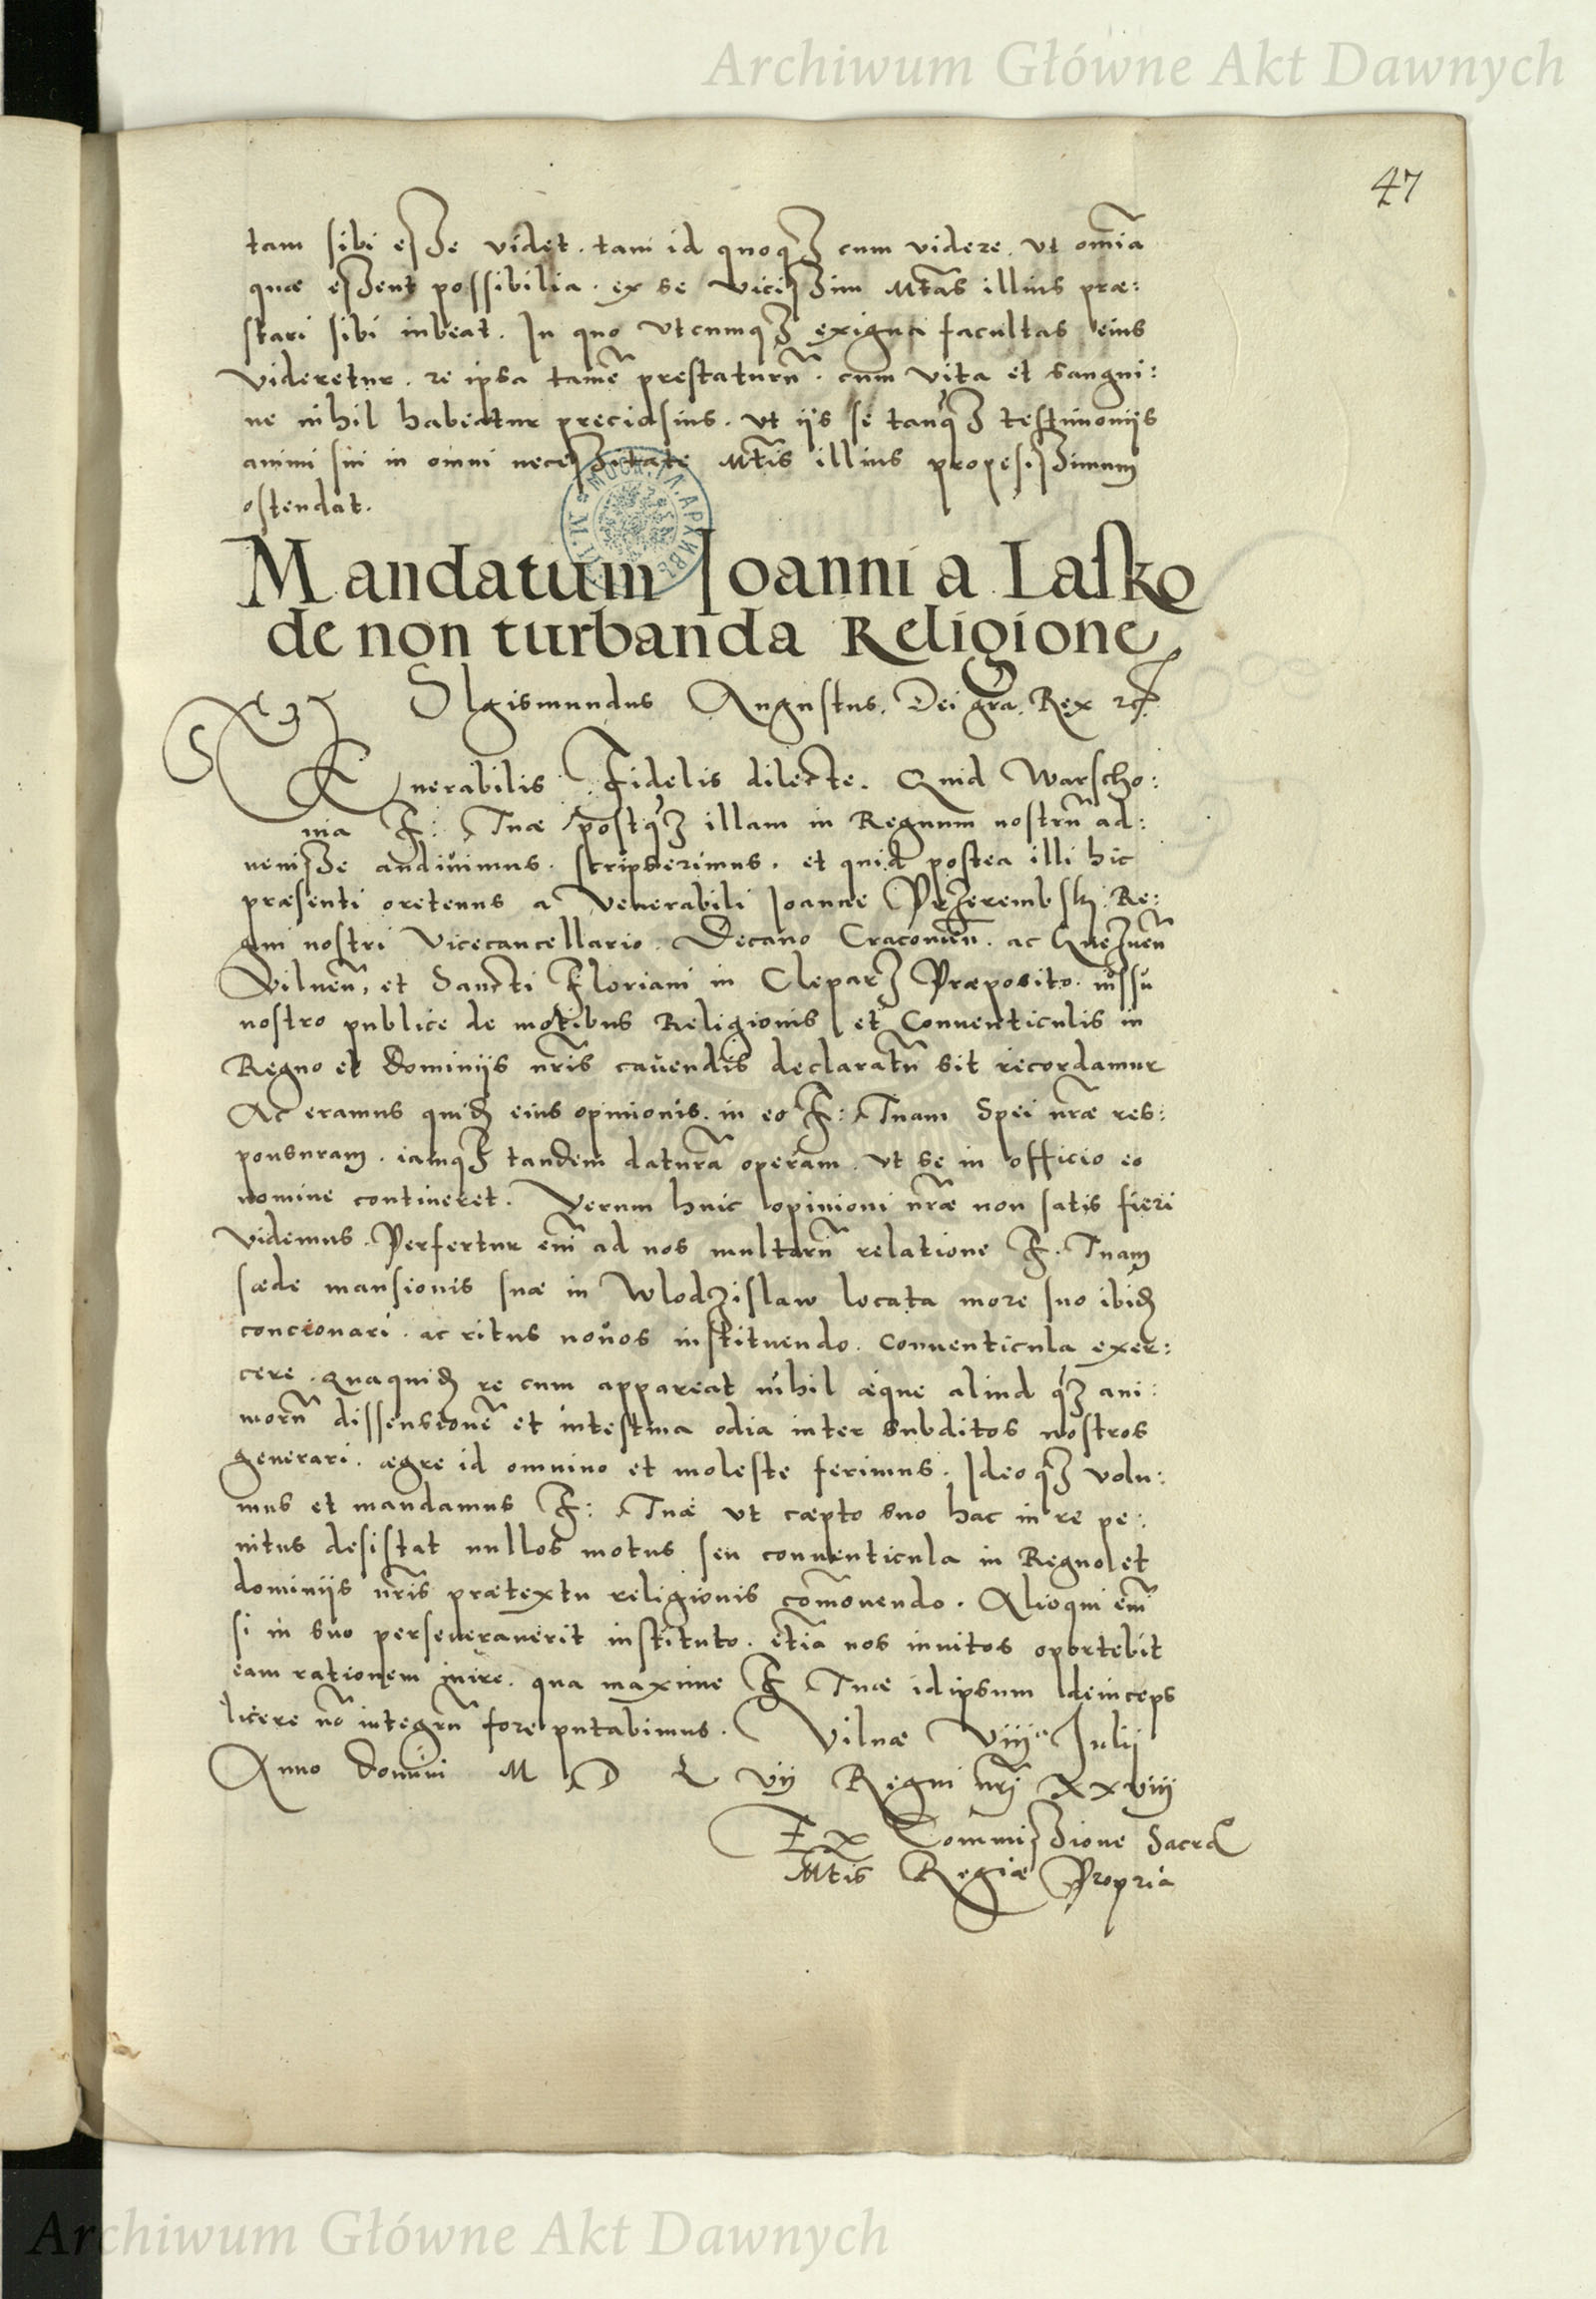 Archiwum Główne Akt Dawnych
47
tam sibi esse videt. tam id quoqȝ cum videre. ut om̃ia
quæ essent possibilia. ex se vicissim Mtãs illius præ:
stari sibi iubeat. In quo utcumqȝ exigua facultas eius
videretur. re ipsa tamẽ prestaturũ. cum vita et sangui:
ne nihil habeatur preciosius. ut ijs se tanqȝ testimonijs
animi sui in omni necessitate Mtis illius propesissimum
ostendat.
Mandatum Joanni a Lasko
de non turbanda Religione
SIgismundus Augustus. Dei gra. Rex etc.
Venerabilis Fidelis dilecte. Quid Warscho:
uia F: Tuæ postqȝ illam in Regnum nostrũ ad:
uenisse audiuimus. scripserimus. et quid postea illi hic
præsenti oretenus a Venerabili Joanne Przerembskj. Re:
gni nostri Vicecancellario. Decano Cracouieñ. ac Gneznẽn
Vilneñ, et Sancti Floriani in Cleparz Præposito. iussu
nostro publice de motibus Religionis et Conuenticulis in
Regno et Dominijs nr̃is cauendis declaratũ sit recordamur
Ac eramus quidẽ eius opinionis. in eo F: Tuam Spei nr̃æ res:
ponsuram. iamqȝ tandem daturã operam. ut se in officio eo
nomine contineret. Verum huic opinioni nr̃æ non satis fieri
videmus. Perfertur em̃ ad nos multorũ relatione F. Tuam
sæde mansionis suæ in Wlodzislaw locata more suo ibidẽ
concionari. ac ritus nouos instituendo. conuenticula exer:
cere. quaquidẽ re cum appareat nihil æque aliud qȝ ani:
morũ dissensionẽ et intestina odia inter subditos nostros
generari. ægre id omnino et moleste ferimus. Ideoqȝ volu:
mus et mandamus F: Tuæ ut cæpto suo hac in re pe:
nitus desistat nullos motus seu conuenticula in Regno et
dominijs nr̃is prætextu religionis com̃ouendo. Alioqui em̃
si in suo perseuerauerit instituto. etiã nos inuitos oportebit
eam rationem inire. qua maxime F Tuæ idipsum deinceps
licere nõ integrũ fore putabimus. Vilnæ Viija Julij
Anno Domini M D L vij Regni nr̃j XXviij
Ex Commissione Sacræ
Mtis Regiæ Propria
Archiwum Główne Akt Dawnych